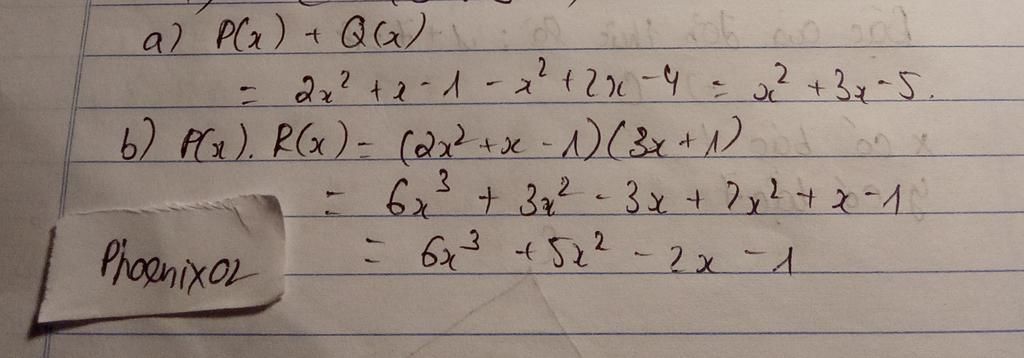 a) P(x) + Q(x)
= 2x² + x - 1 - x² + 2x - 4 = x² + 3x - 5.
b) P(x). R(x) = (2x² + x - 1)(3x + 1)
= 6x³ + 3x² - 3x + 2x² + x - 1
= 6x³ + 5x² - 2x - 1
Phoenix02